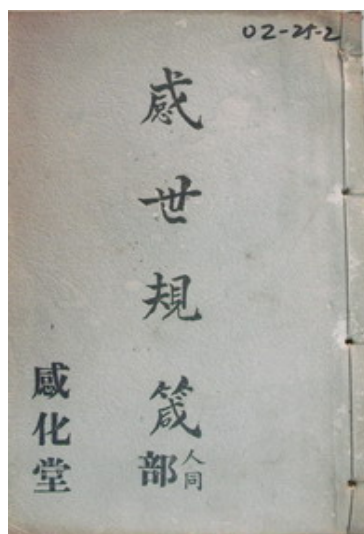 02-25-2
感世規箴
人同
部
感化堂